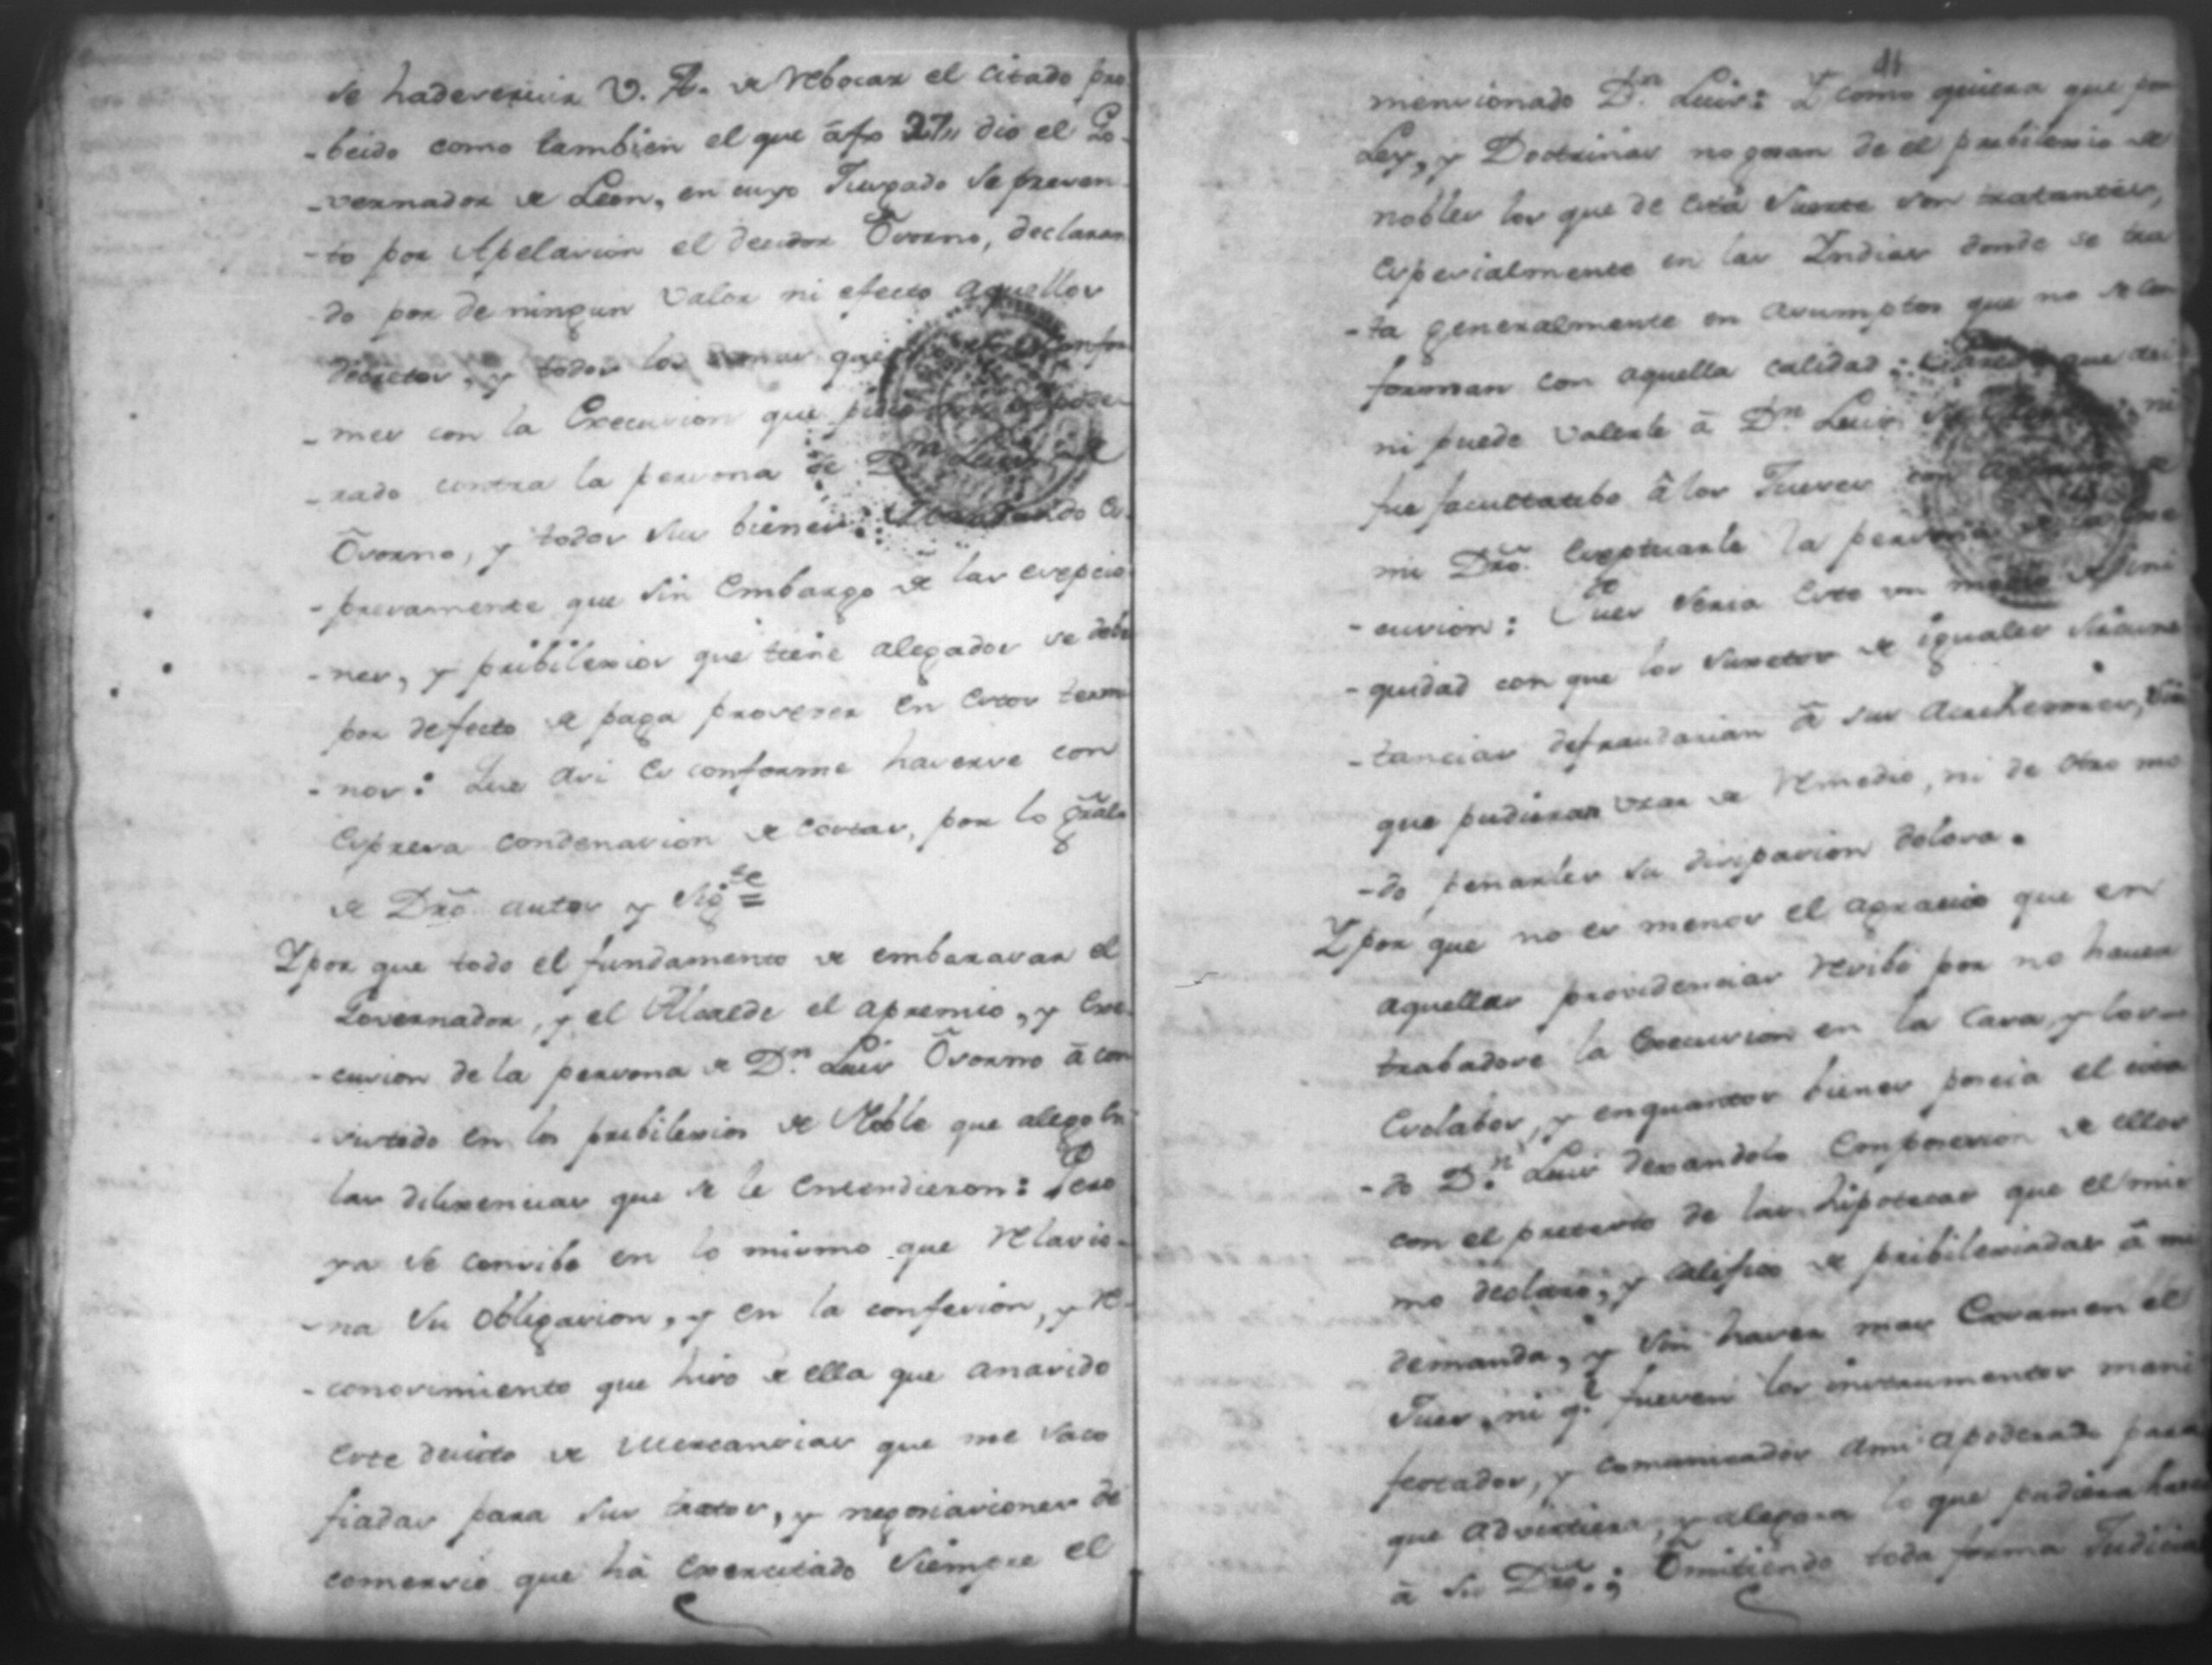 se hadeservir V. A. de Rebocar el citado pro
-beido como tambien el que áfs 27,, dio el Go-
-vernador de Leon, en cuyo Juzgado se presen-
-to por Apelacion el deudor Ôsorno, declaran
do por de ningun valor ni efecto aquellos
decretos, y todos los
-mes con la Execucion que
-rado contra la persona de Dn Luis de
Ôsorno, y todos sus bienes: Mandando Es-
-presamente que sin embargo de las excepcio-
-nes, y pribilexios que tiene alegados se debe
por defecto de paga proveser en estos termi
-nos: Que asi es conforme haserse con
Espresa condenasion de costas, por lo gral
de Dro. autos y sigte =
Y por que todo el fundamento de embarasar el
Governador, y el Alcalde el apremio, y Exe-
-cusion de la persona de Dn. Luis Ôsorno á con
-sistido en los pribilexios de Noble que alego en
las dilixencias que se le entendieron: Pero
ya se consibe en lo mismo que Relasio-
-na su obligasion, y en la confesion, y Re-
-conosimiento que hiso de ella que anasido
este devito de Mercansias que me saco
fiadas para sus tratos, y negosiasiones de
comersio que há Exersitado siempre el
41
mensionado Dn. Luis: Y como quiera que por
Ley, y Doctrinas no gosan de el pribilexio de
nobles los que de esta suerte son tratantes,
Espesialmente en las Yndias donde se tra
-ta generalmente en asumptos que no se con
forman con aquella calidad: que asi
ni puede valerle á Dn Luis ni
fue facultatibo á los Jueses con
mi Dro. Exeptuarle la persona
-cusion: Pues seria esto un medio
-quidad con que los suxetos de iguales sircuns
-tancias defraudarian á sus acrehedores, sin
que pudieran usar de Remedio, ni de otro mo
-do penarles su disipasion dolosa.
Y por que no es menos el agravio que en
aquellas providencias Resibi por no haver
trabadose la Execusion en la Casa, y los-
Esclabos, y enquantos bienes poseia el cita
-do Dn. Luis dexandolo Enposesion de ellos
con el pretexto de las hipotecas que el mis
mo declaró, y califico de pribilexiadas á mi
demanda, y sin haver mas Exsamen el
Jues, ni qe fuesen los instrumentos mani
festados, y comunicados ami apoderado para
que advirtiera, y alegara lo que pudiera haser
á su Dro.; Ômitiendo toda forma Judicial